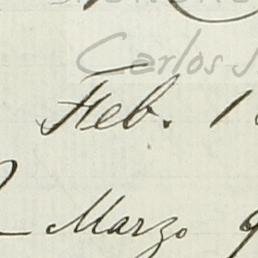 Carlos
Feb. 1
Marzo 9